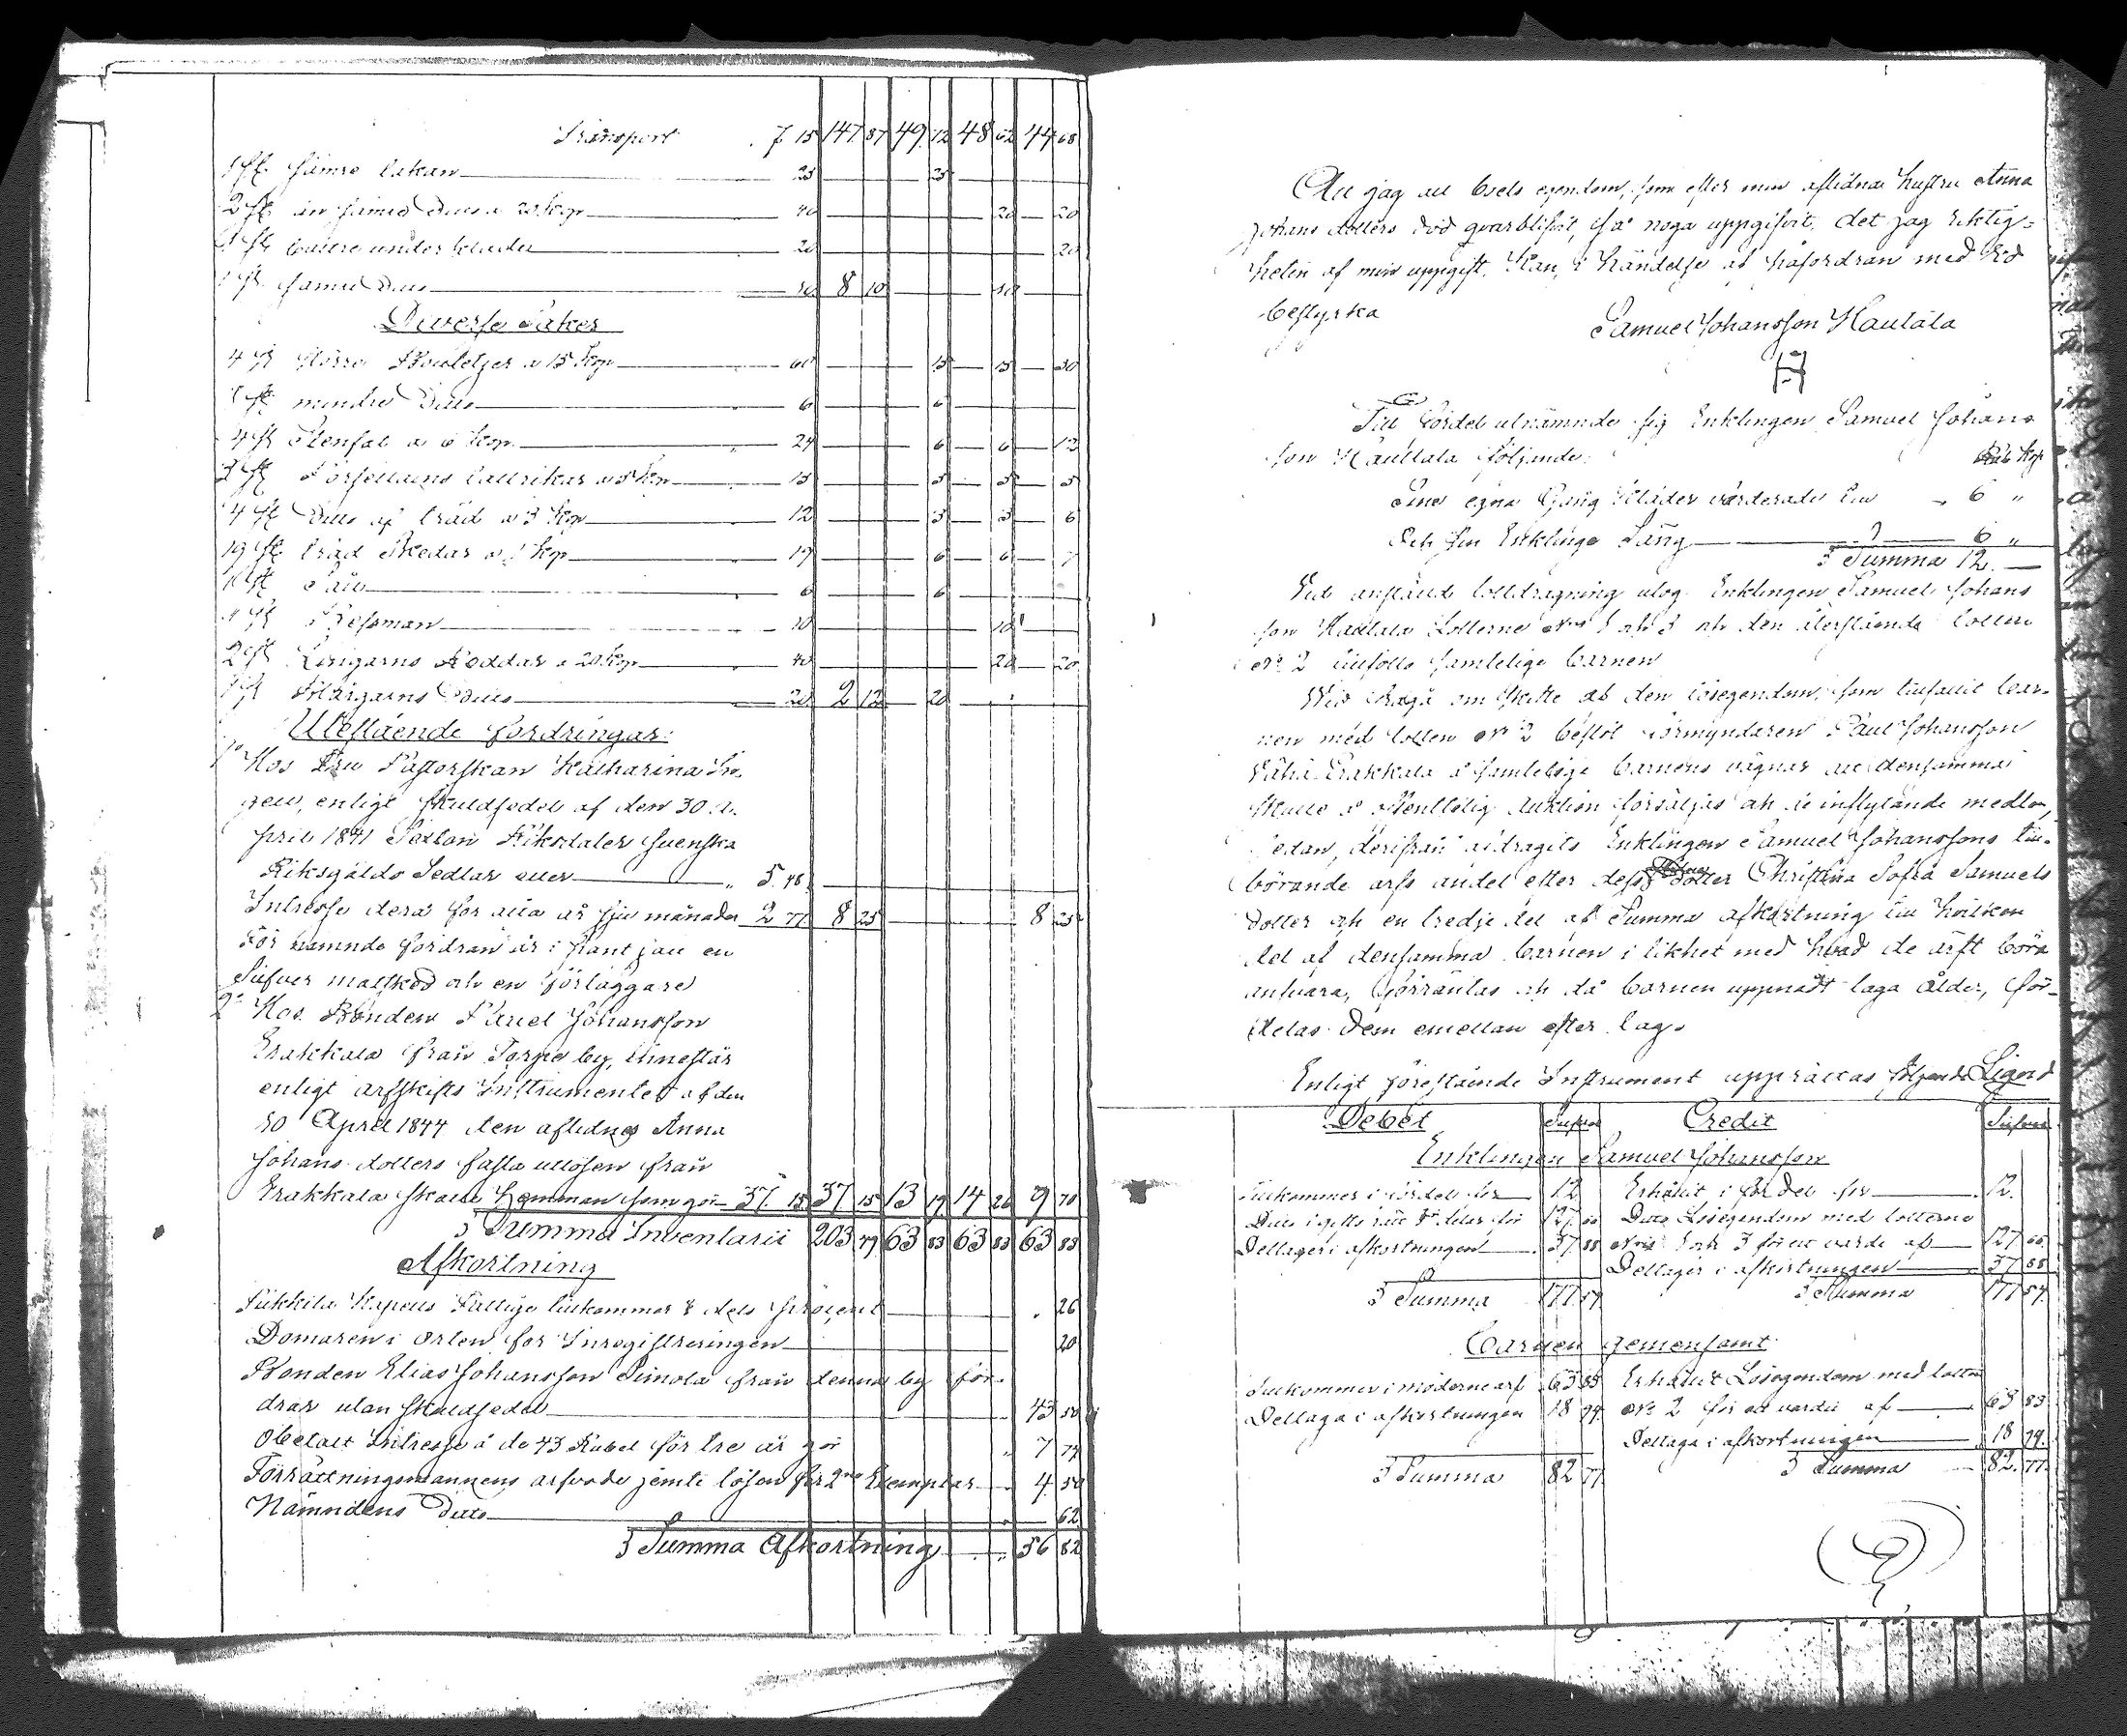 Transport 7 15 147 87 49 12 48 62 44 68
1 st. sämre lakan 25 25
2 st. än sämre Ditto a 20 Kop 40 20 20
1 st. under kläder 20 20
1 st. samre Ditto 10 8 10 10
Diverse Saker
4 st större Bouteljer a 15 Kop 60 15 15 30
1 st mindre Ditto 6 6
4 st Stenfat a 6 Kop 24 6 6 12
3 st Porsellains tallrikar a 5 Kop 15 5 5 5
4 st Ditto af träd a 3 Kop 12 3 3 6
19 st träd Skedar a 1 Kop 19 6 6 7
1 st Såll 6 6
1 st Bessman 10 10
2 st Lingarns Roddar a 20 Kop 40 20 20
1 st Blårgarns Ditto 20 2 12 20
Utestående fordringar:
1º Hos Fru Pastorskan Katharina
enligt skuldsedel af den 30 A-
pril 1841 Sexton Riksdaler Svenska
Riksgälds Sedlar eller 5 48
Intresse derå för åtta år sju månader 2 77 8 25 8 25
För nämnde fordran är i pant en
Silfver matsked och en förläggare
2º Hos Bonden Pauel Johansson
Erakkala från Torpo by, innestår
enligt arfskifts Instrumentet af den
30 April 1844 den aflidnes Anna
Johans dotters fasta utlösen från
Erakkala skatte Hemman som gör 37. 15 37 15 13 19 14 26 9 70
S Summa Inventarii 203 49 63 83 63 83 63 83
Afkortning
Sükkila Kapells Fattige tillkommer 8 dels procent 26
Domaren i Orten för Inregistreringen 20
Bonden Elias Johansson Simola från denna by for-
drar utan skuldsedel 43 50
Obetalt Intresse å de 43 Rubel för tre år gör 7 74
Förrättningsmannens arfvode jemte lösen för 2ne Exemplar 4 50
Nämndens Ditto 62
S Summa Afkortning 56 82
Att jag all boets egendom, som efter min aflidna hustru Anna
Johans dotters död qvarblifvit, så noga uppgifvit, det jag riktig=
heten af min uppgift, kan, i händelse af påfordran med Ed
bestyrka
Samuel Johansson Hautala
Till Fördel utnämnde sig Enklingen Samuel Johans
son Hautala följande: Rub Kop
Sine egna Gång Kläder värderade till 6 "
Och sin Enklings Säng 6 "
S Summa 12. —
Vid anstäld lottdragning utog Enklingen Samuel Johans
son Hautala Lotterne Nris 1 och 3 och den återstående lotten
Nº 2 tillföll samtelige barnen
Vid fråga om skifte af den lösegendom, som tillfallit bar-
nen med lotten Nº 2 beslöt Förmyndaren Paul Johansson
Erakkala å samtelige barnens vägnar att densamma
skulle å offentlig Auktion försäljas och de inflytande medlen,
Sedan, derifrån afdragits Enklingen Samuel Johanssons till-
hörande arfs andel efter dess dotter Christina Sofia Samuels
dotter och en tredje del af Summa afkortning till hvilken
del af densamma barnen i likhet med hvad de ärft böra
ansvara, förräntas och då barnen uppnått laga ålder, för-
delas dem emellan efter lag.
Enligt förestående Instrument upprättas följande Liqvid
Debet Silfver Credit Silfver
Enklingen Samuel Johansson
Tillkommer i fördel för 12 Erhållit i fördel för 12.
Ditto i gifto rätt delar för 127 66 Ditto Lösegendom med lotterne
Deltager i afkortningen 37 88 Nris 1 och 3 för ett värde af 127 66
Deltager i afkortningen 37 88
S Summa 177 54 S Summa 177 54
Barnen gemensamt
Tillkommer i möderne arf 63 83 Erhållit Lösegendom med lotten
Deltaga i afkortningen 18 94 Nº 2 för ett värde af 63 83
Deltaga i afkortningen 18 94
S Summa 82 77 S Summa 82. 77